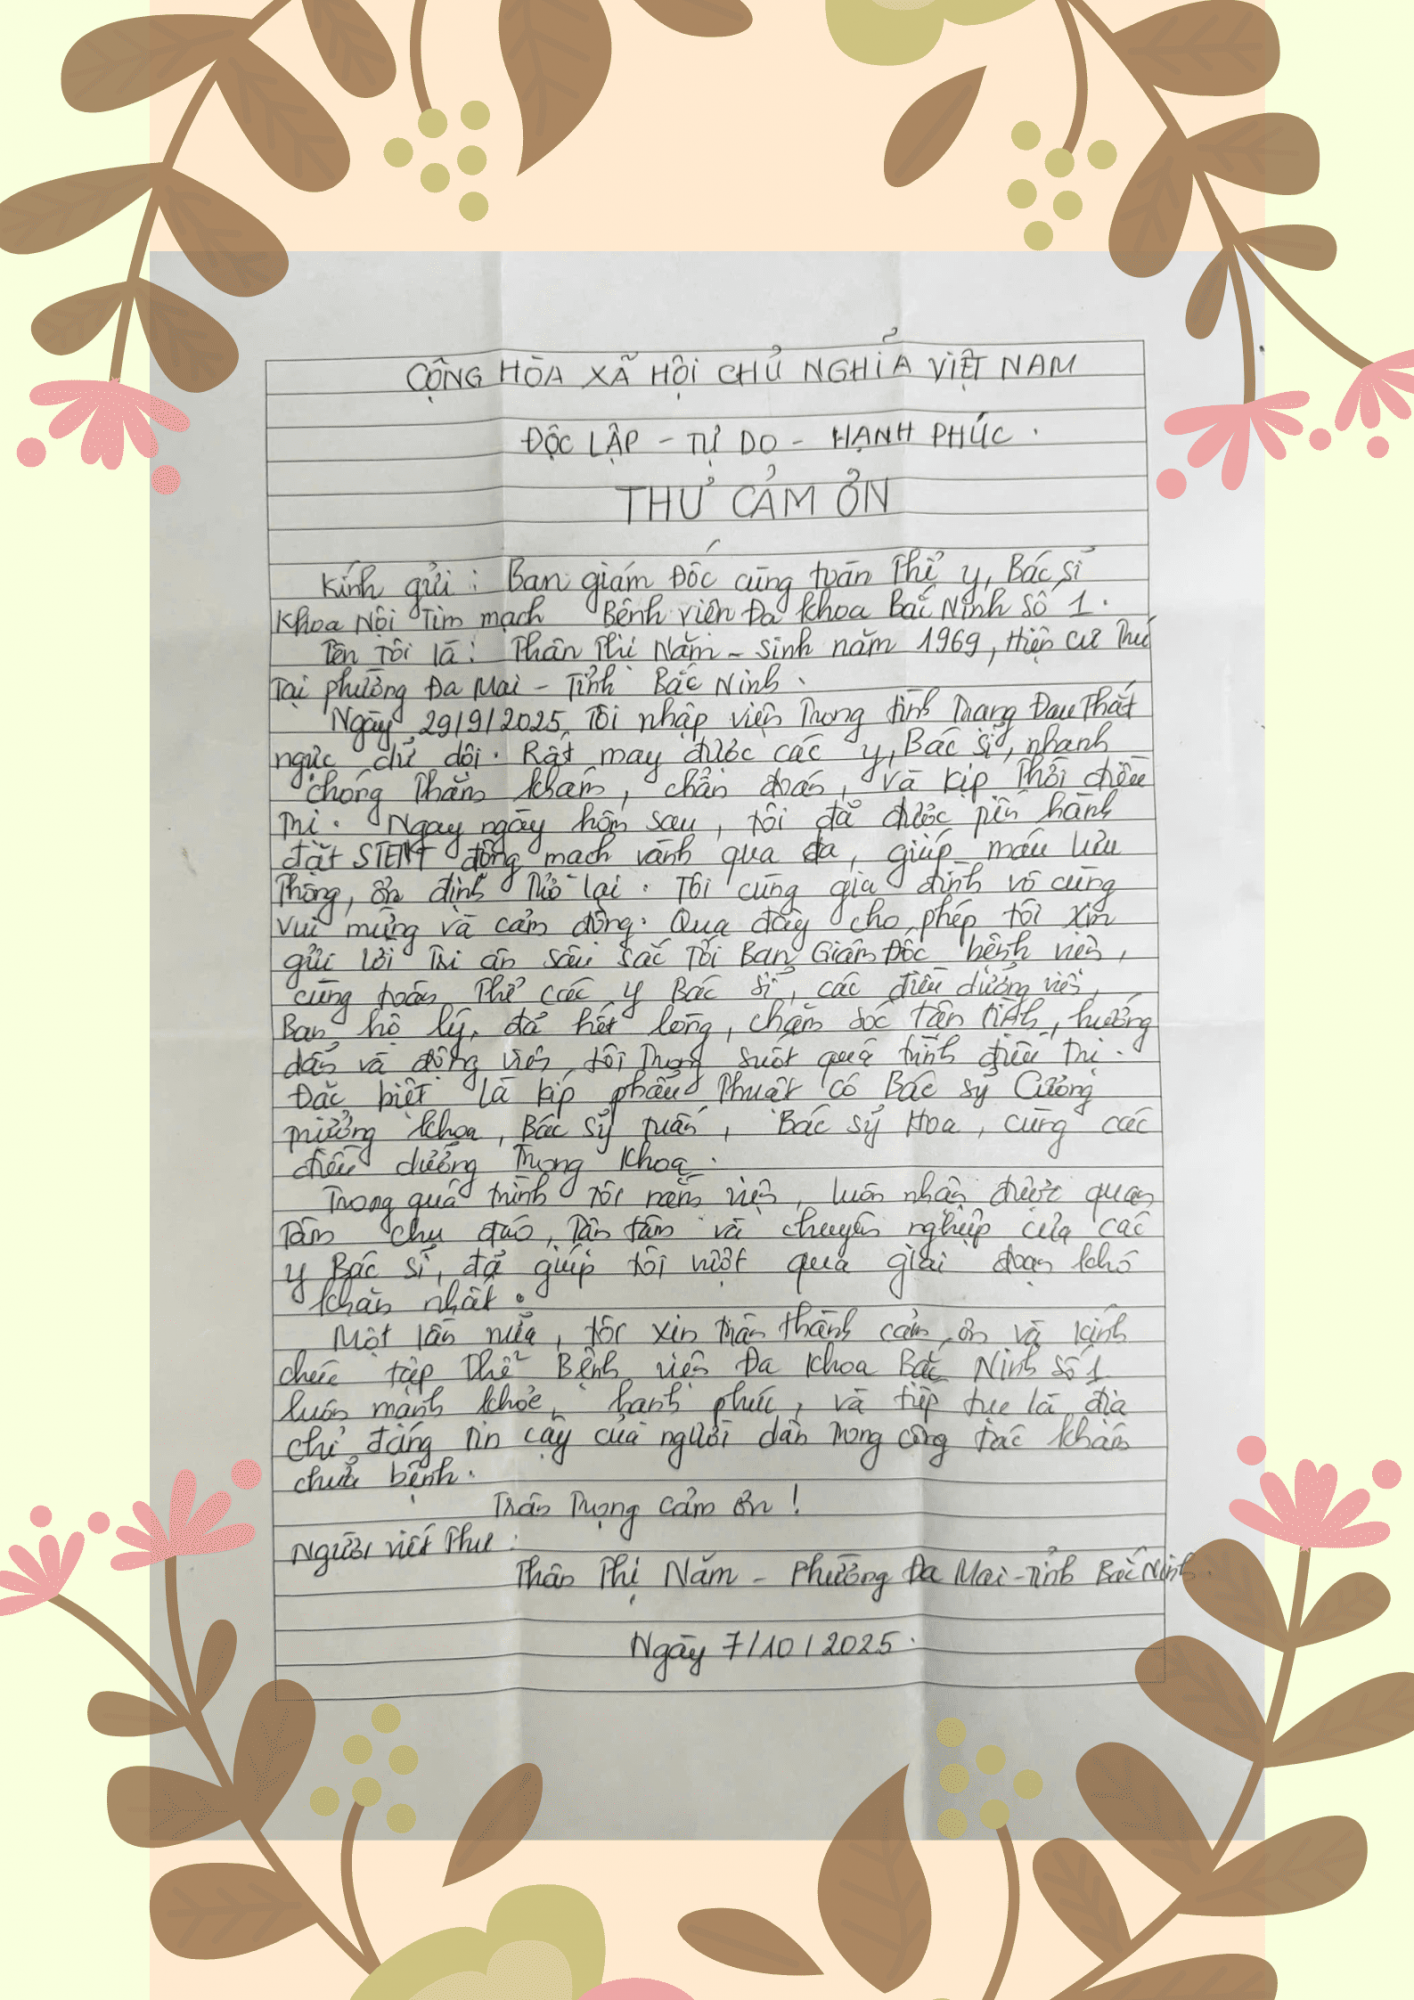 CỘNG HÒA XÃ HỘI CHỦ NGHĨA VIỆT NAM
ĐỘC LẬP - TỰ DO - HẠNH PHÚC.
THƯ CẢM ƠN
Kính gửi: Ban giám Đốc cùng toàn Thể y, Bác sĩ
Khoa Nội Tim mạch Bệnh viện Đa khoa Bắc Ninh Số 1.
Tên Tôi là: Thân Thị Năm - Sinh năm 1969, Hiện cư Trú
Tại phường Đa Mai - Tỉnh Bắc Ninh.
Ngày 29/9/2025, Tôi nhập viện Trong tình Trạng Đau Thắt
ngực dữ dội. Rất may được các y, Bác sĩ, nhanh
chóng Thăm khám, chẩn đoán, và kịp Thời điều
Trị. Ngay ngày hôm sau, tôi đã được tiến hành
đặt STENT động mạch vành qua da, giúp máu lưu
Thông, ổn định Trở lại. Tôi cùng gia đình vô cùng
vui mừng và cảm động. Qua đây cho phép tôi xin
gửi lời Tri ân sâu sắc Tới Ban Giám Đốc bệnh viện,
cùng toàn Thể các y Bác sĩ, các điều dưỡng viên,
Ban hộ lý, đã hết lòng, chăm sóc tận tình, hướng
dẫn và động viên, tôi Trong suốt quá trình điều Trị.
Đặc biệt là kíp phẫu Thuật có Bác sỹ Cường
trưởng khoa, Bác sỹ Tuấn, Bác sỹ Hoa, cùng các
điều dưỡng Trong khoa.
Trong quá trình Tôi nằm viện, luôn nhận được quan
Tâm chu đáo, Tận tâm và chuyên nghiệp của các
y Bác sĩ, đã giúp tôi vượt qua giai đoạn khó
khăn nhất.
Một lần nữa, tôi xin trân thành cảm ơn và kính
chúc tập Thể Bệnh viện Đa Khoa Bắc Ninh Số 1
luôn mạnh khỏe, hạnh phúc, và tiếp tục là địa
chỉ đáng tin cậy của người dân trong công tác khám
chữa bệnh.
Trân Trọng cảm ơn!
Người viết Thư:
Thân Thị Năm - Phường Đa Mai - Tỉnh Bắc Ninh.
Ngày 7/10/2025.